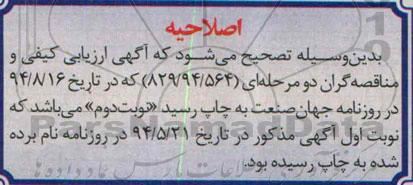 اصلاحیه
بدین‌وسیله تصحیح می‌شود که آگهی ارزیابی کیفی و
مناقصه‌گران دو مرحله‌ای (۸۲۹/۹۴/۵۶۴) که در تاریخ ۹۴/۸/۱۶
در روزنامه جهان‌صنعت به چاپ رسید «نوبت‌دوم» می‌باشد که
نوبت اول آگهی مذکور در تاریخ ۹۴/۵/۲۱ در روزنامه نام برده
شده به چاپ رسیده بود.